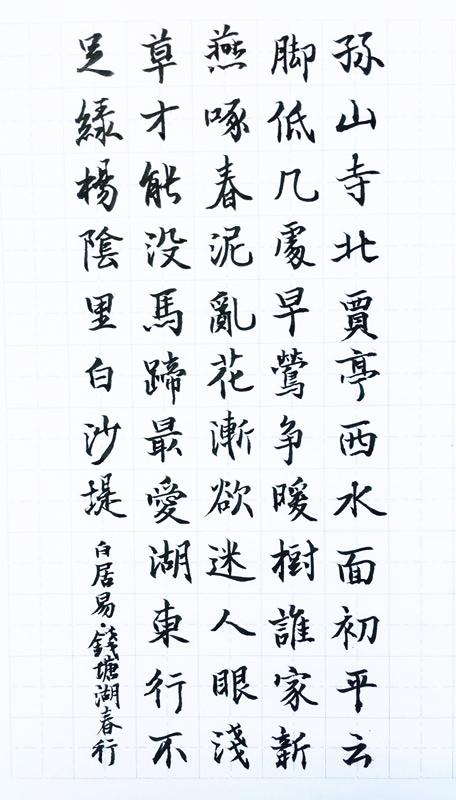 孤山寺北賈亭西水面初平云
脚低几處早鶯争暖樹誰家新
燕啄春泥亂花漸欲迷人眼淺
草才能没馬蹄最愛湖東行不
足綠楊陰里白沙堤
白居易·錢塘湖春行